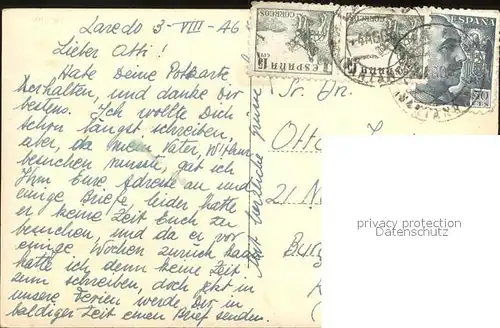 Laredo 3-VIII-46
Lieber Otti!
Habe Deine Postkarte
erhalten, und danke Dir
bestens. Ich wollte Dich
schon längst schreiben,
aber, da mein Vater,
besuchen musste, gab ich
Ihm Eure Adresse an und
einige Briefe, leider hatte
er keine Zeit Euch zu
besuchen, und da er vor
einige Wochen zurück kam
hatte ich denn keine Zeit
zum schreiben, doch jetzt in
unsere Ferien werde Dir in
baldiger Zeit einen Brief senden.
Mit herzliche grüsse
CORREOS
ESPAÑA
15
CORREOS
ESPAÑA
50
Sr. Dn.
Otto
21. N.
privacy protection
watermark